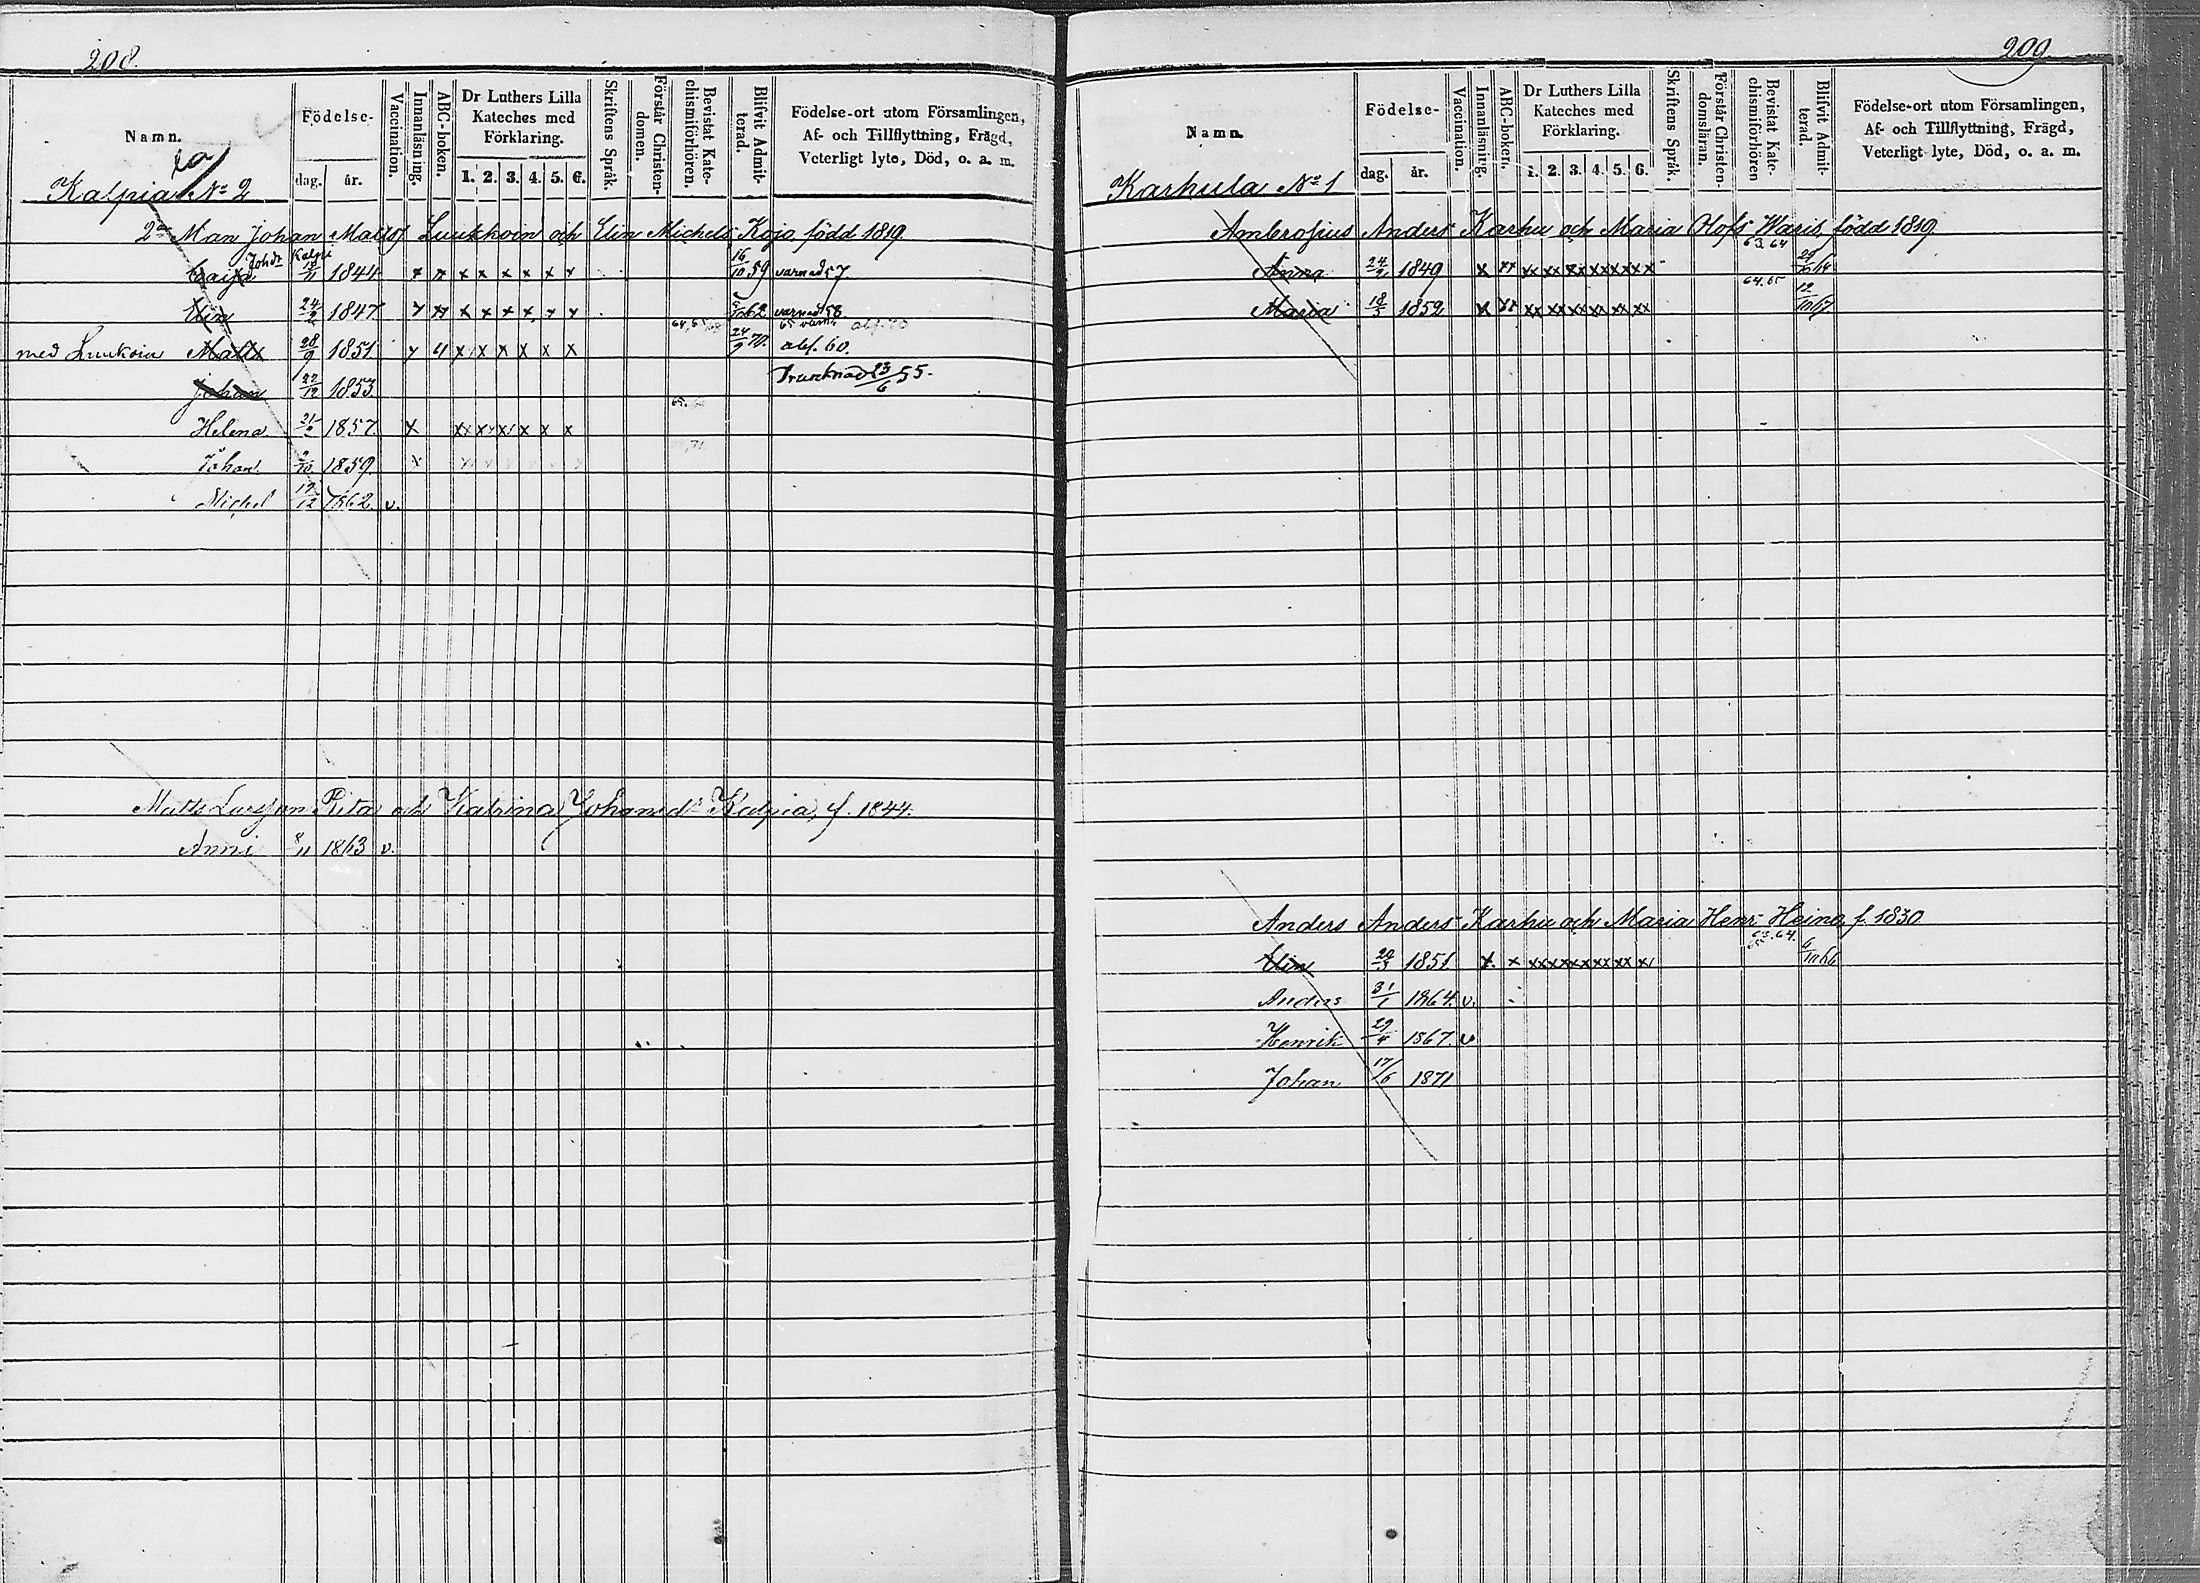 208.
Namn.
Födelse-
dag.
år.
Vaccination.
Innanläsning.
ABC-boken.
Dr Luthers Lilla Kateches med Förklaring.
1. 2. 3. 4. 5. 6.
Skriftens Språk.
Förstår Christendomen.
Bevistat Katechismiförhören.
Blifvit Admitterad.
Födelse-ort utom Församlingen,
Af- och Tillflyttning, Frägd,
Veterligt lyte, Död, o. a. m.
Kalpia No 2
2dra Man Johan Matts Luukkoin och Elin Michels Kojo, född 1819.
Caisa Johdr Kalpi 1844 x x x x x x x x 16/10 59 varnad 57
Elin 1847 x x x x x x x x 62 varnad 58
med Luukoin Matts 28/9 1851 x x x x x x 24/9 70 abf. 60.
Johan 22/12 1853 Drunknad 23/6 55.
Helena 1857 x x x x x x x 65.
Johan 1859. x
Michel 1862. v.
Matts Larsson Rita och Katrina Johansdr Kalpia, f. 1844.
Anni 8/11 1863 v.
209.
Namn.
Födelse-
dag.
år.
Vaccination.
Innanläsning.
ABC-boken.
Dr Luthers Lilla Kateches med Förklaring.
1. 2. 3. 4. 5. 6.
Skriftens Språk.
Förstår Christendomsläran.
Bevistat Katechismiförhören
Blifvit Admitterad.
Födelse-ort utom Församlingen,
Af- och Tillflyttning, Frägd,
Veterligt lyte, Död, o. a. m.
Karhula No 1
Ambrosius Anders Karhu och Maria Olofs Waris, född 1819
Anna 1849 x xx xx xx xx xx xx xx 63.64
Maria 18/5 1852 x xx xx xx xx xx xx xx 64.65
Anders Anders Karhu och Maria Henr. Heino, f. 1830
Elin 20/3 1851. x x xx xx xx xx xx xx 63.64.
Anders 31/1 1864. v.
Henrik 29/4 1867. v
Johan 17/6 1871